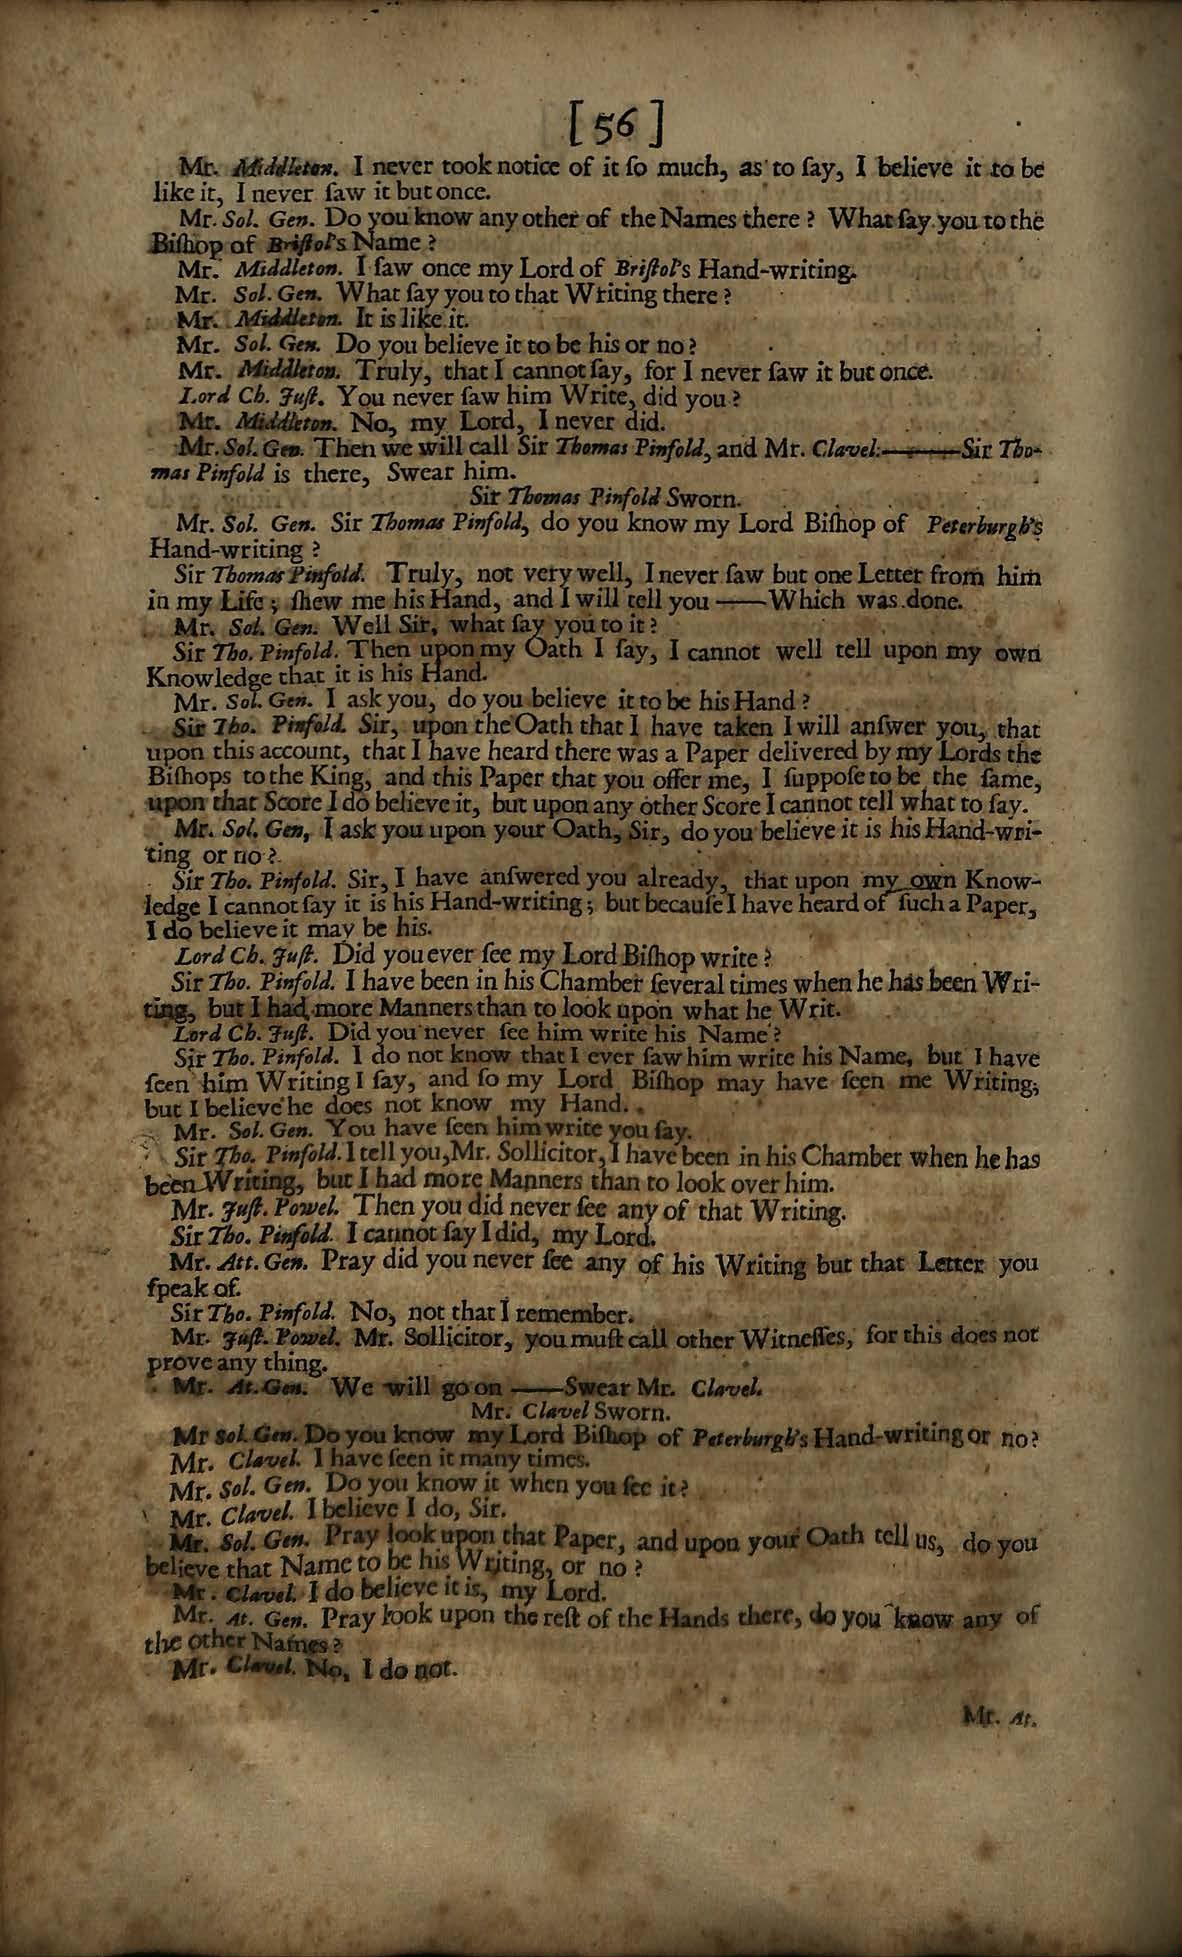 [ 56 ]
Mr. Middleton. I never took notice of it ſo much, as to ſay, I believe it to be
like it, I never ſaw it but once.
Mr. Sol. Gen. Do you know any other of the Names there ? What ſay you to the
Biſhop of Briſtol's Name ?
Mr. Middleton. I ſaw once my Lord of Briſtol's Hand-writing.
Mr. Sol. Gen. What ſay you to that Writing there ?
Mr. Middleton. It is like it.
Mr. Sol. Gen. Do you believe it to be his or no ?
Mr. Middleton. Truly, that I cannot ſay, for I never ſaw it but once.
Lord Ch. Juſt. You never ſaw him Write, did you ?
Mr. Middleton. No, my Lord, I never did.
Mr. Sol. Gen. Then we will call Sir Thomas Pinfold, and Mr. Clavel.———Sir Tho-
mas Pinfold is there, Swear him.
Sir Thomas Pinfold Sworn.
Mr. Sol. Gen. Sir Thomas Pinfold, do you know my Lord Biſhop of Peterburgh's
Hand-writing ?
Sir Thomas Pinfold. Truly, not very well, I never ſaw but one Letter from him
in my Life ; ſhew me his Hand, and I will tell you ——Which was done.
Mr. Sol. Gen. Well Sir, what ſay you to it ?
Sir Tho. Pinfold. Then upon my Oath I ſay, I cannot well tell upon my own
Knowledge that it is his Hand.
Mr. Sol. Gen. I ask you, do you believe it to be his Hand ?
Sir Tho. Pinfold. Sir, upon the Oath that I have taken I will anſwer you, that
upon this account, that I have heard there was a Paper delivered by my Lords the
Biſhops to the King, and this Paper that you offer me, I ſuppoſe to be the ſame,
upon that Score I do believe it, but upon any other Score I cannot tell what to ſay.
Mr. Sol. Gen, I ask you upon your Oath, Sir, do you believe it is his Hand-wri-
ting or no ?
Sir Tho. Pinfold. Sir, I have anſwered you already, that upon my own Know-
ledge I cannot ſay it is his Hand-writing ; but becauſe I have heard of ſuch a Paper,
I do believe it may be his.
Lord Ch. Juſt. Did you ever ſee my Lord Biſhop write ?
Sir Tho. Pinfold. I have been in his Chamber ſeveral times when he has been Wri-
ting, but I had more Manners than to look upon what he Writ.
Lord Ch. Juſt. Did you never ſee him write his Name ?
Sir Tho. Pinfold. I do not know that I ever ſaw him write his Name, but I have
ſeen him Writing I ſay, and ſo my Lord Biſhop may have ſeen me Writing,
but I believe he does not know my Hand.
Mr. Sol. Gen. You have ſeen him write you ſay.
Sir Tho. Pinfold. I tell you, Mr. Sollicitor, I have been in his Chamber when he has
been Writing, but I had more Manners than to look over him.
Mr. Juſt. Powel. Then you did never ſee any of that Writing.
Sir Tho. Pinfold. I cannot ſay I did, my Lord.
Mr. Att. Gen. Pray did you never ſee any of his Writing but that Letter you
ſpeak of.
Sir Tho. Pinfold. No, not that I remember.
Mr. Juſt. Powel. Mr. Sollicitor, you muſt call other Witneſſes, for this does not
prove any thing.
Mr. At. Gen. We will go on ——Swear Mr. Clavel.
Mr. Clavel Sworn.
Mr Sol. Gen. Do you know my Lord Biſhop of Peterburgh's Hand-writing or no ?
Mr. Clavel. I have ſeen it many times.
Mr. Sol. Gen. Do you know it when you ſee it ?
Mr. Clavel. I believe I do, Sir.
Mr. Sol. Gen. Pray look upon that Paper, and upon your Oath tell us, do you
believe that Name to be his Writing, or no ?
Mr. Clavel. I do believe it is, my Lord.
Mr. At. Gen. Pray look upon the reſt of the Hands there, do you know any of
the other Names ?
Mr. Clavel. No, I do not.
Mr. At.